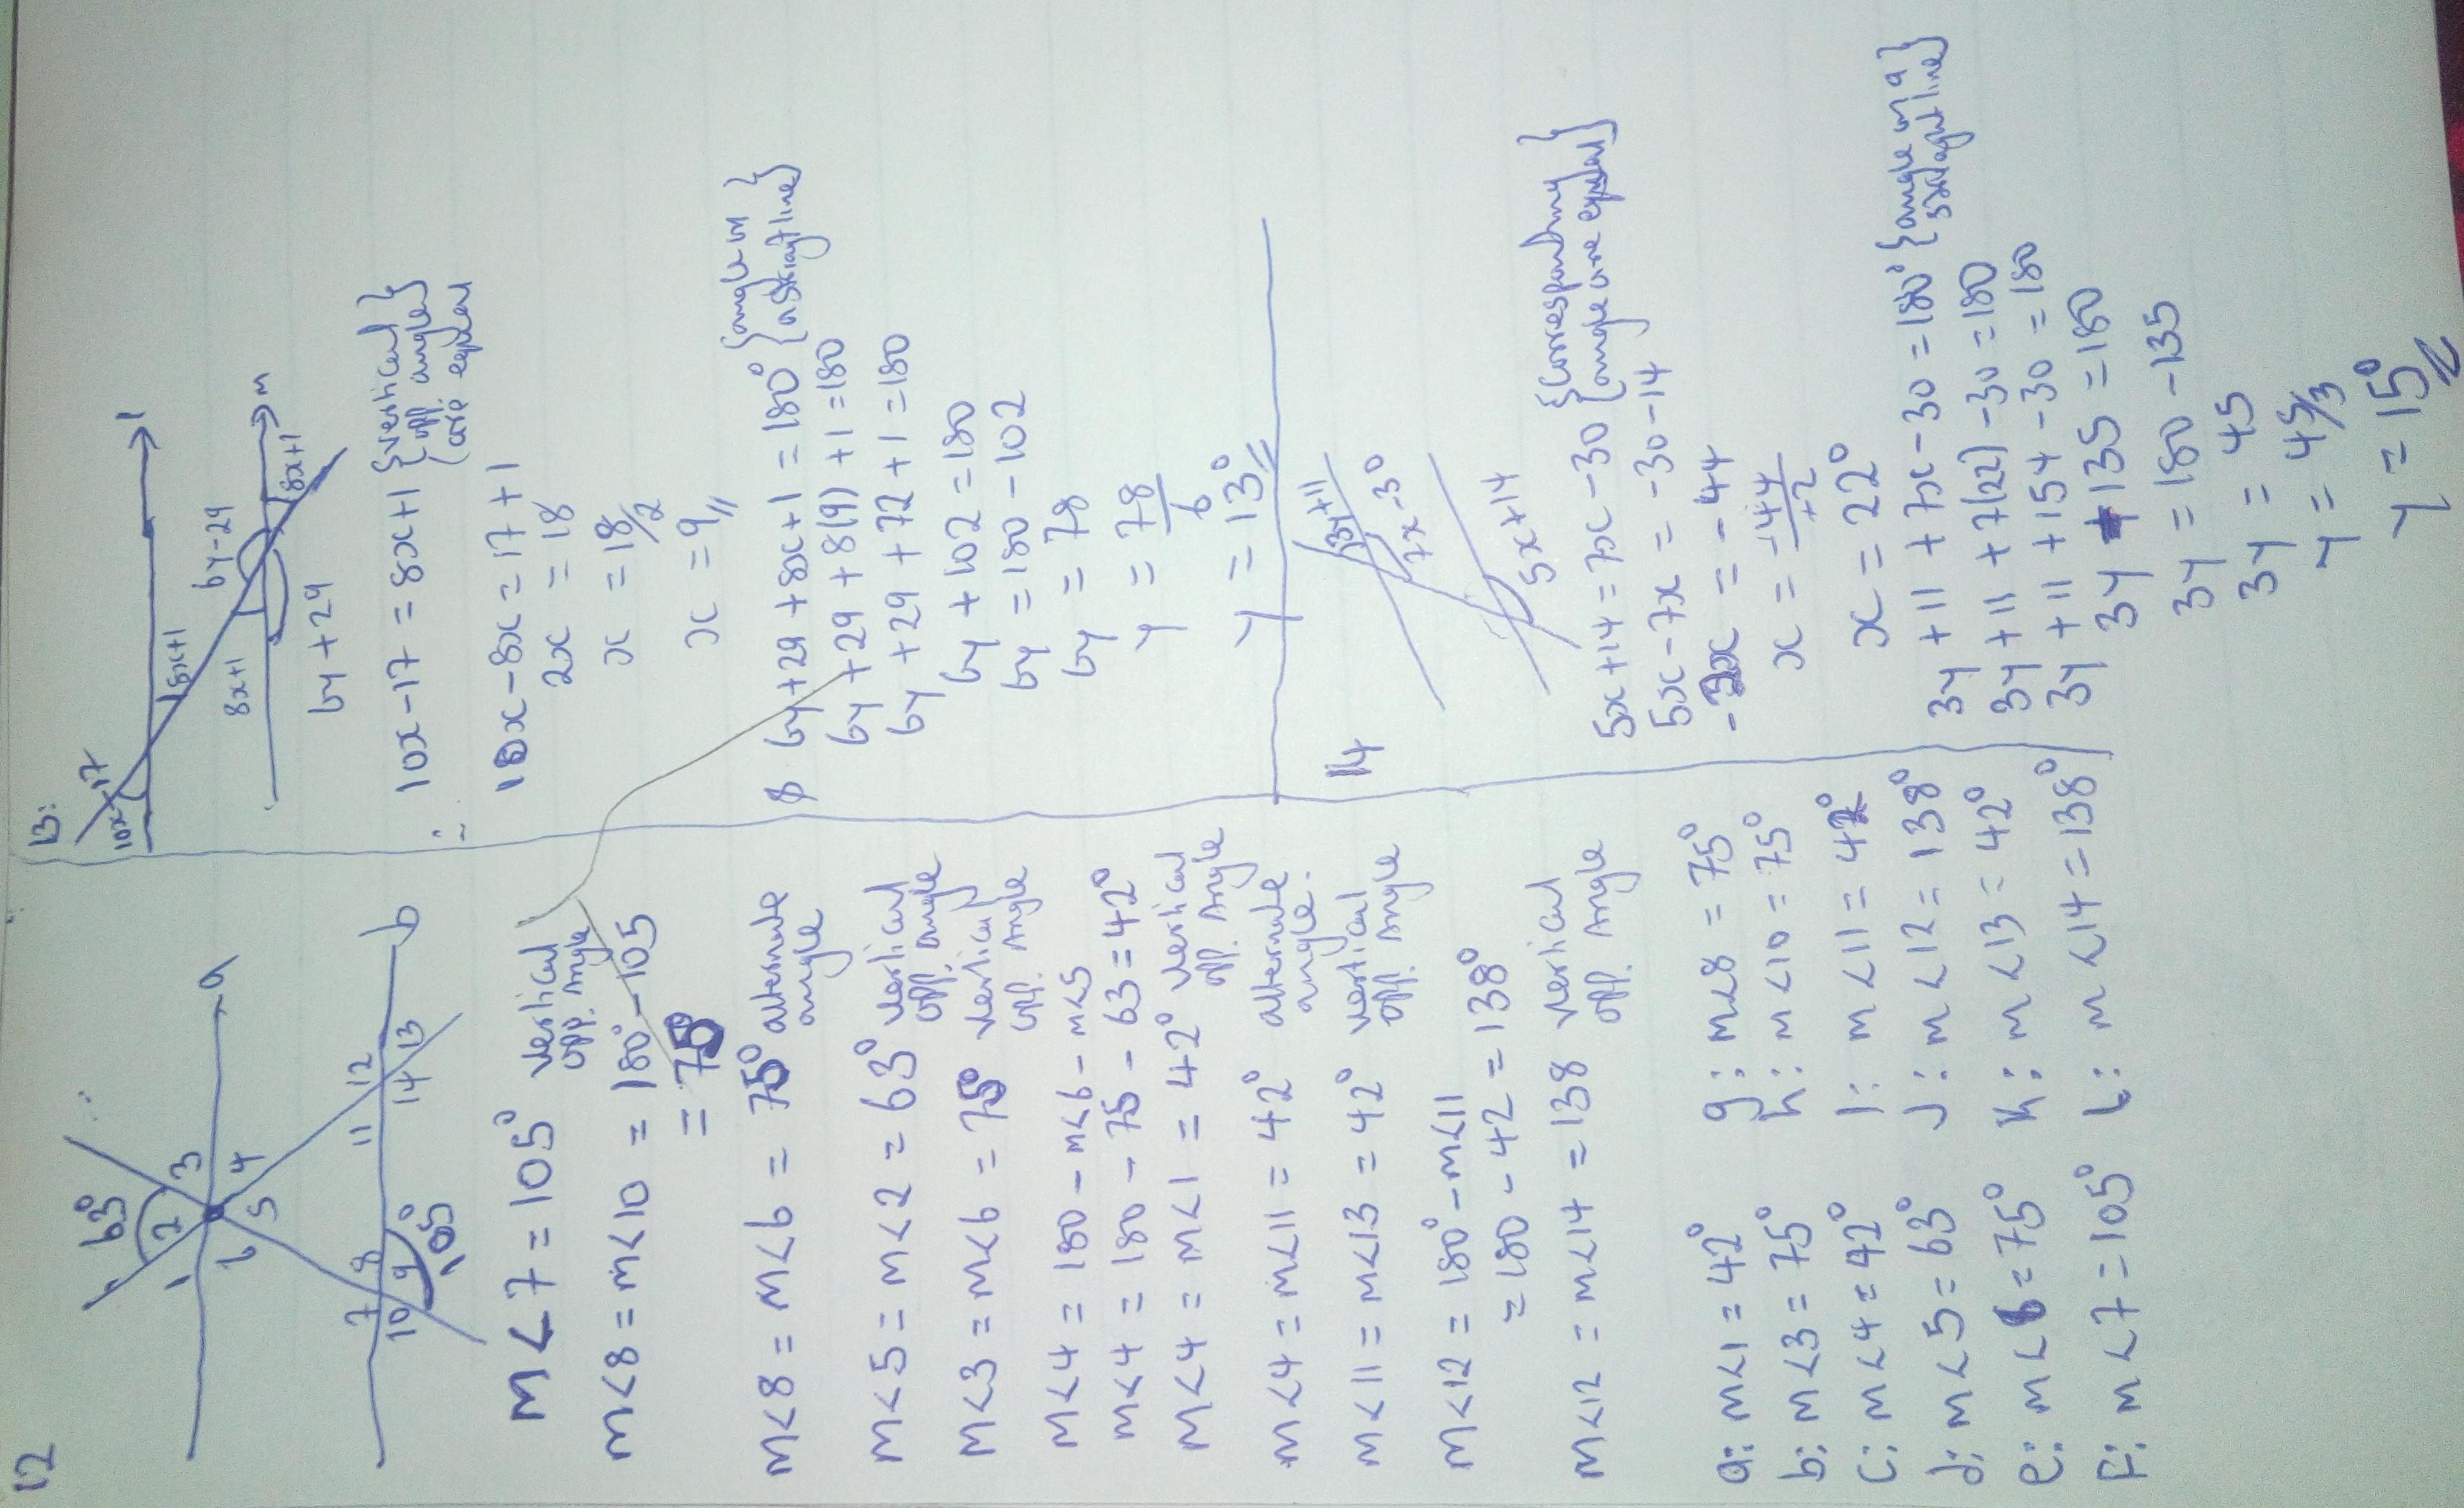 12
63°
1 2 3
6 5 4
a
7 8
10 9
11 12
14 13
b
105°
m<7 = 105° vertical
opp. Angle
m<8 = m<10 = 180° - 105
= 75°
m<8 = m<6 = 75° alternate
angle
m<5 = m<2 = 63° vertical
opp. angle
m<3 = m<6 = 75° vertical
opp. Angle
m<4 = 180 - m<6 - m<5
m<4 = 180 - 75 - 63 = 42°
m<4 = m<1 = 42° vertical
opp. Angle
m<4 = m<11 = 42° alternate
angle.
m<11 = m<13 = 42° vertical
opp. Angle
m<12 = 180° - m<11
= 180 - 42 = 138°
m<12 = m<14 = 138 vertical
opp. Angle
a: m<1 = 42°
b: m<3 = 75°
c: m<4 = 42°
d: m<5 = 63°
e: m<6 = 75°
F: m<7 = 105°
g: m<8 = 75°
h: m<10 = 75°
I: m<11 = 42°
J: m<12 = 138°
K: m<13 = 42°
L: m<14 = 138°
13:
10x-17
l
8x+1
6y-29
8x+1
m
8x+1
6y+29
∴ 10x-17 = 8x+1 {vertical}
{opp. angle}
(are equal
10x-8x = 17+1
2x = 18
x = 18/2
x = 9
6y+29+8x+1 = 180° {angle on}
{a straight line}
6y+29+8(9)+1 = 180
6y+29+72+1 = 180
6y+102 = 180
6y = 180-102
6y = 78
y = 78/6
y = 13°
14
3y+11
7x-30
5x+14
5x+14 = 7x-30 {corresponding}
{angle are equal}
5x-7x = -30-14
-2x = -44
x = -44/+2
x = 22°
3y+11+7x-30 = 180° {angle on a}
{straight line}
3y+11+7(22)-30 = 180
3y+11+154-30 = 180
3y+135 = 180
3y = 180-135
3y = 45
y = 45/3
y = 15°